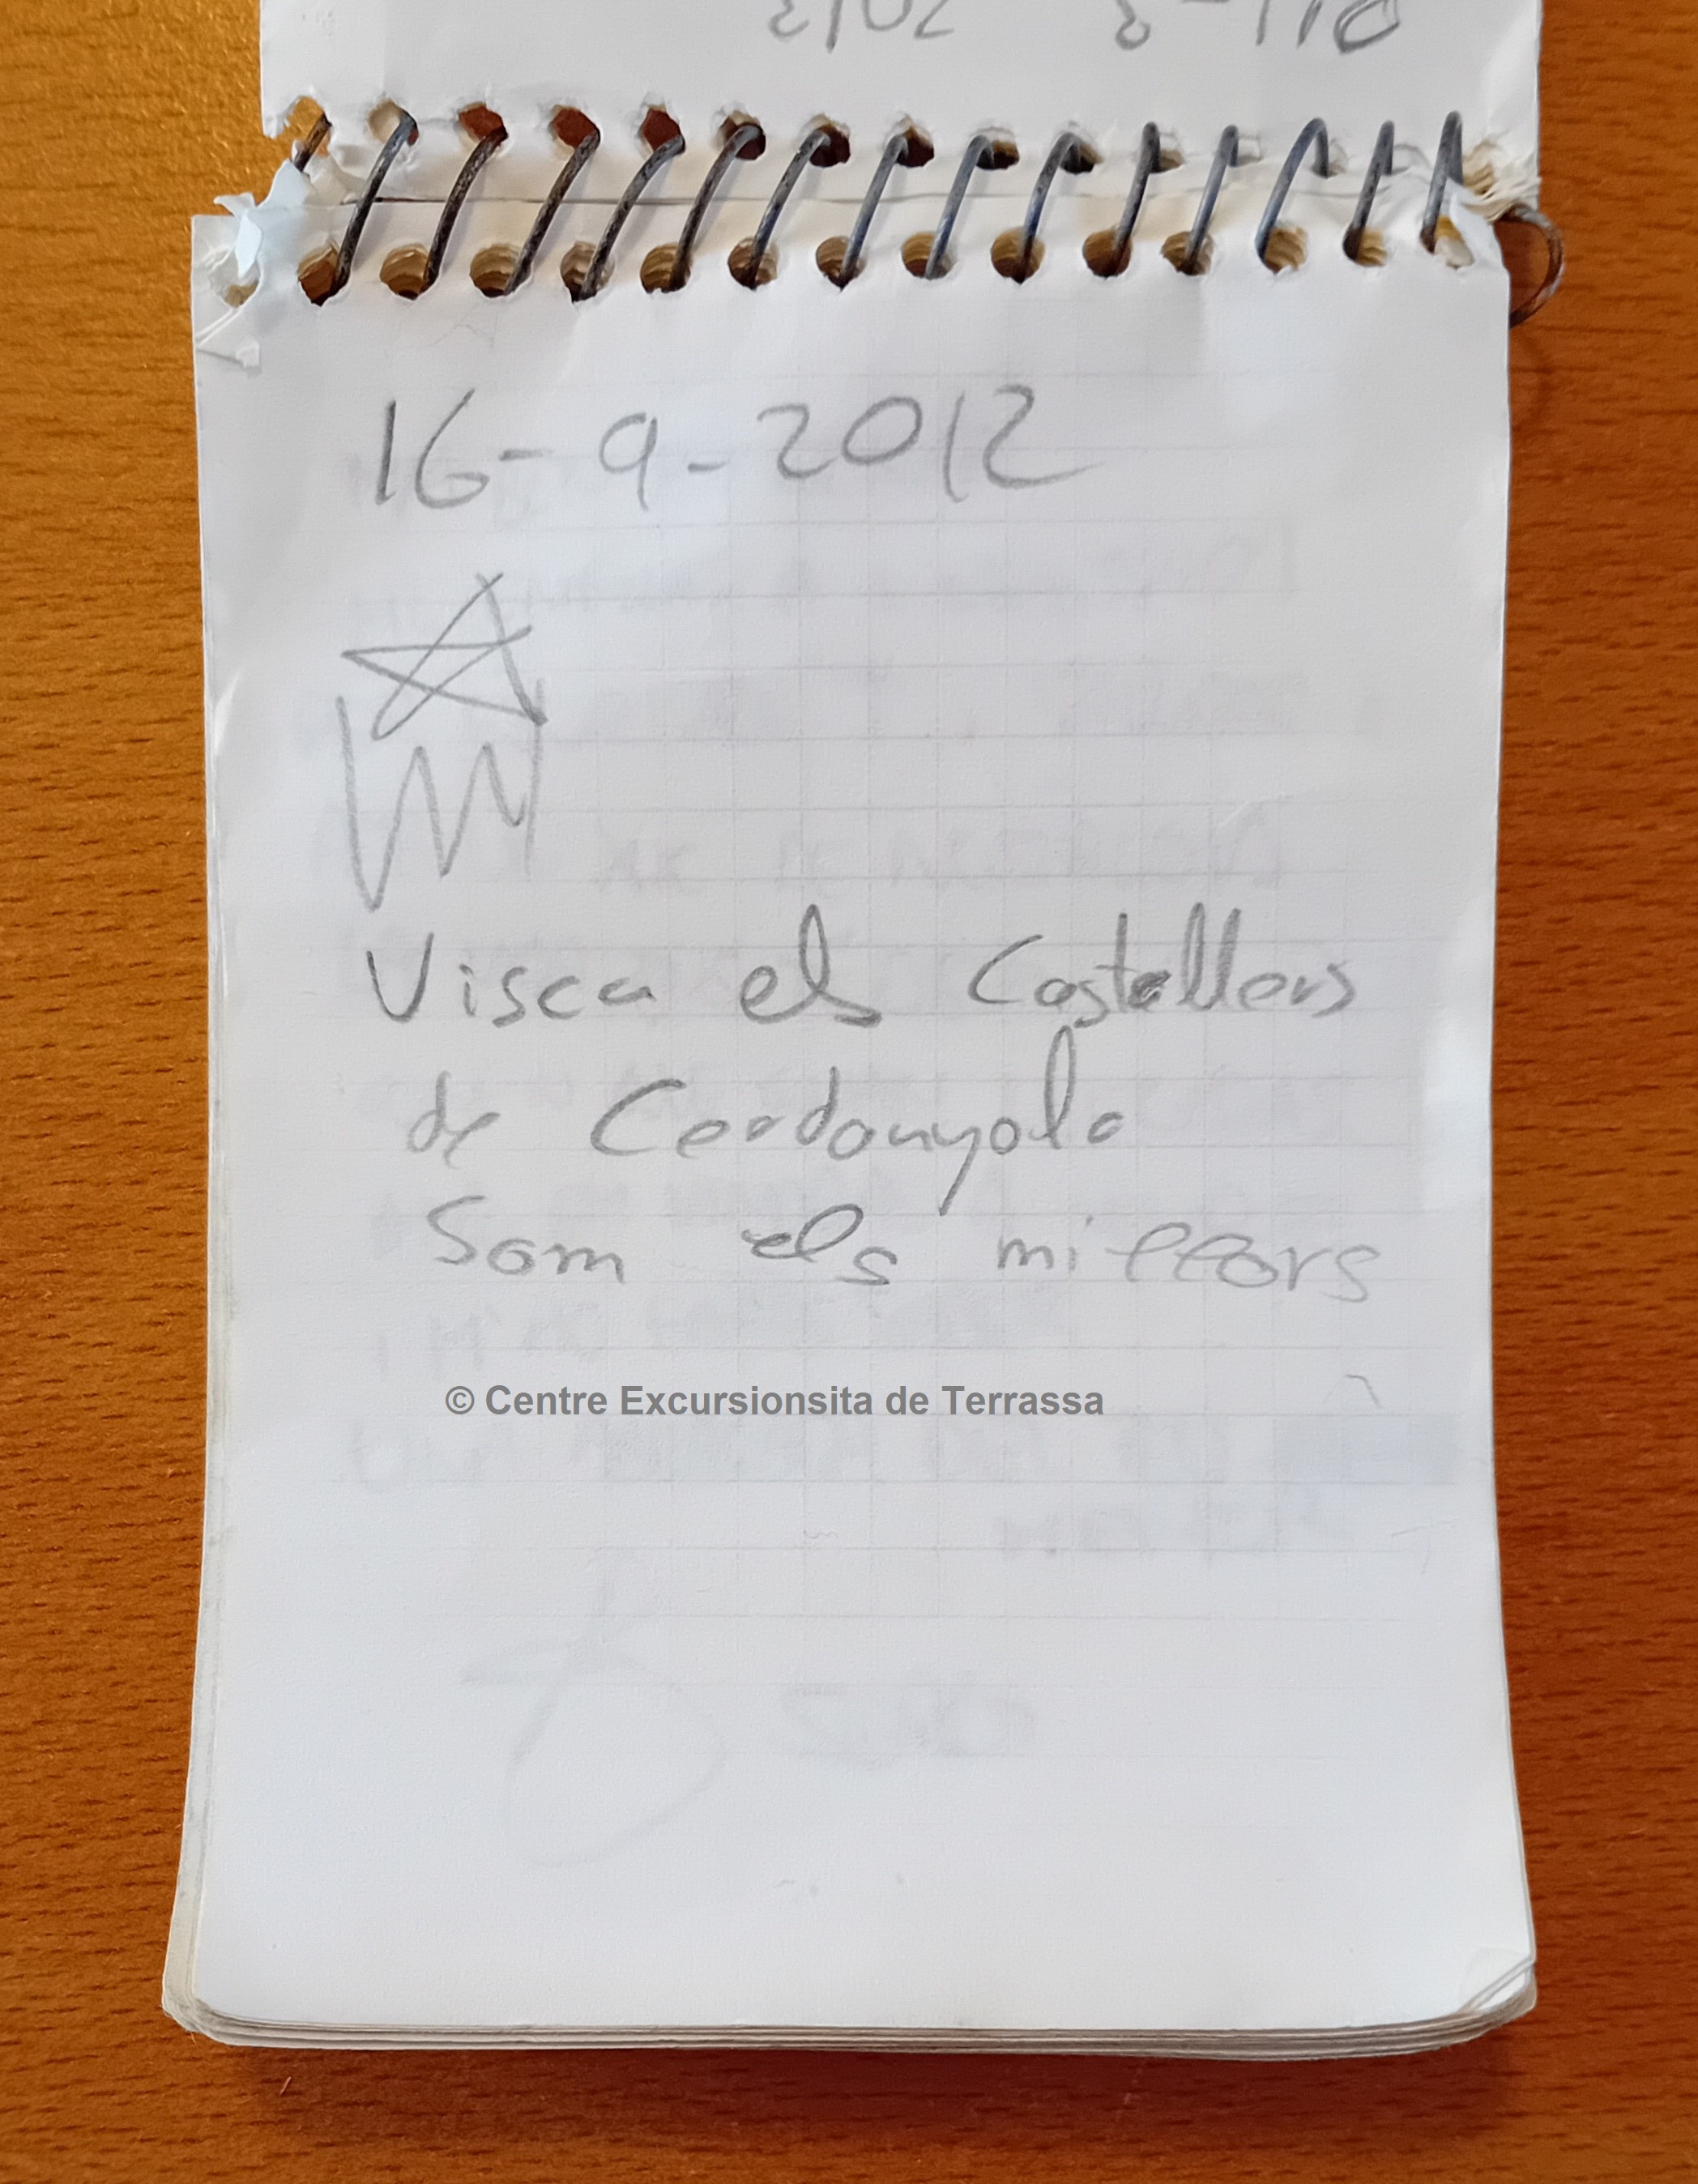 16-9-2012
Visca els Castellers
de Cerdanyola
Som els millors
© Centre Excursionsita de Terrassa